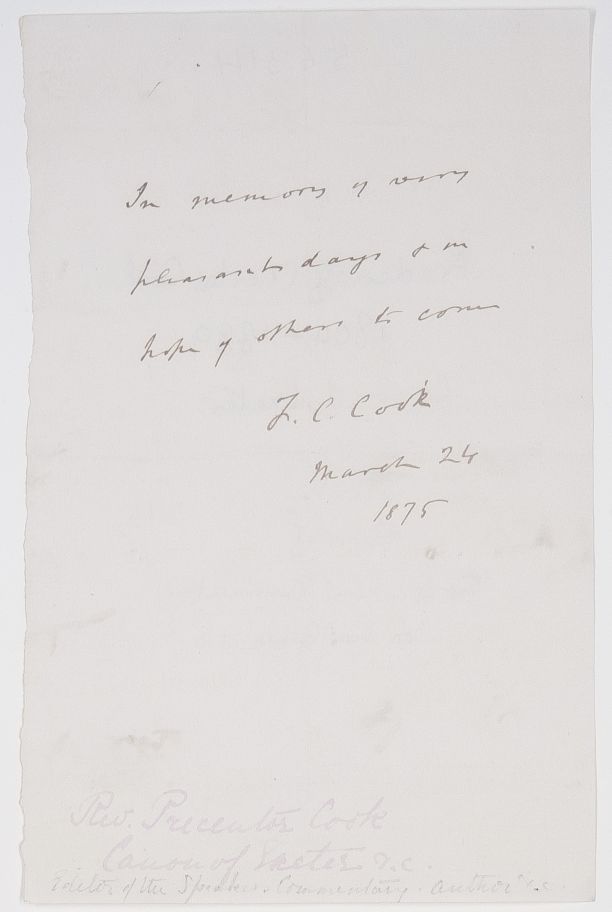 In memory of very
pleasant days & in
hope of others to come
F. C. Cook
March 24
1875
Rev. Precentor Cook
Canon of Exeter &c.
Editor of the Speakers Commentary. Author &c.